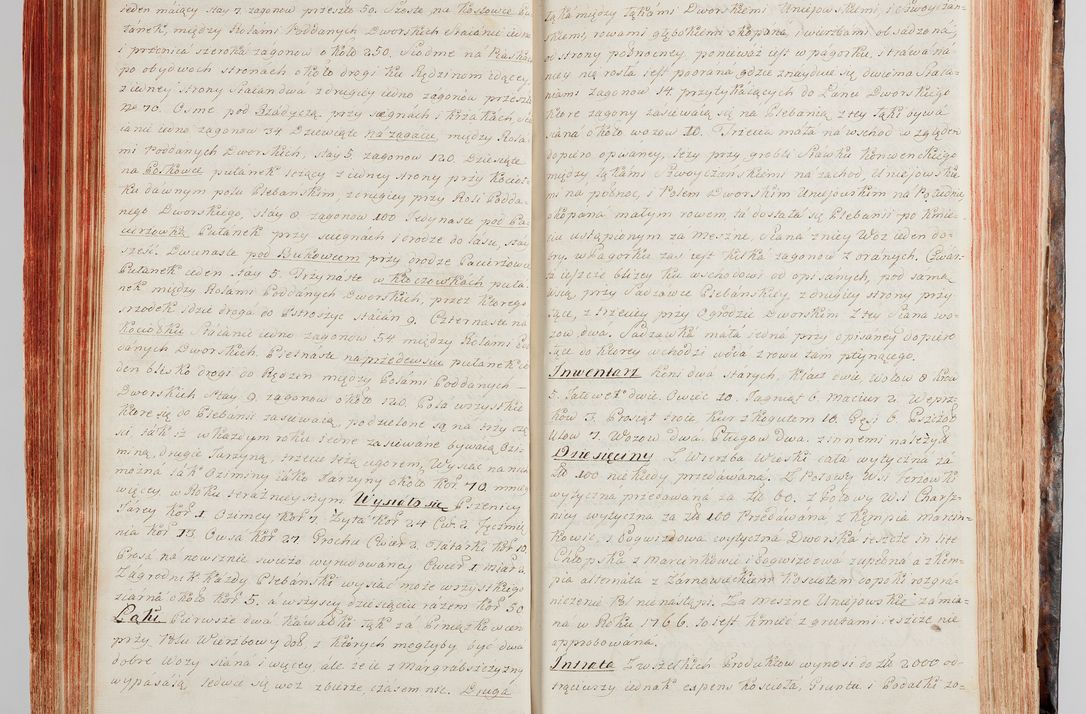 ieden máiący stay 7 zagonow przeszło 50. Szoste na Kossowce Pu-
łanek, między Rolámi Poddanych Dworskich Staianie iedno
i przenica szeroka zagonow około 250. Siodme ná Piasku
po obydwoch stronách około drogi ku Rędzinom idącey
z iedney strony Staian dwa z drugiey iedno zagonow przeszło
No 70. Osme pod przy sciegnách i krzakách, Sta-
ianie iedno zagonow 34 Dziewiąte na zagacie, między Rola-
mi Poddanych Dworskich, stay 5 zagonow 120. Dziesiąte
na Poskowce pułanek leżący z iedney strony przy Kocios-
ku dawnym polu Plebanskim, z drugiey przy Roli Podda-
nego Dworskiego, stay 8 zagonow 100 Jedynaste pod Pa-
cierzowką Pułanek przy sciegnách i drodze do lásu, stay
sześć. Dwunaste pod Bukowcem przy drodze Pacierzowce
Pułanek ieden stay 5. Trzynáste w Kłoczowkach puła-
nek między Rolami Poddánych Dworskich, przez ktorego
srzodek idzie droga do Ostroszyc Staián 9. Czternaste na
Kociosku Staianie iedno zagonow 54 między Rolami Po-
dánych Dworskich. Piętnáste na przedewsiu pułanek ie-
den blisko drogi do Rędzin między Polámi Poddanych
Dworskich Stay 9. zagonow około 120. Polá wszystkie
ktore się do Plebanii zasiewaią, podzielone są na trzy czę-
ści, ták iż w każdym roku iedne zasiewane bywaią Ozi-
miną, drugie Jarzyną, trzecie leżą ugorem, Wysiac na nich
można ták Oziminy iáko Jarzyny około Kor 70. mniey
więcey w Roku teráznieyszym Wysiało się Pszenicy
Jarey Kor 1. Ozimey Kor 7. Zyta Kor 24 Cwr 2. Jęczmie-
nia Kor 13. Owsa Kor 27. Grochu Cwár 2. Tátárki Kor 10.
Prosá na nowiznie swieżo wyrudowaney Cwier 1 miar 2.
Zagrodnik każdy Plebański wysiać może wszystkiego
ziarna około Kor 5. á wszyscy dziesiąciu razem Kor 50
Łąki Pierwsze dwá kawałki łąk zá
przy Polu Wierzbowy dol, z ktorych mogłyby być dwa
dobre Wozy siáná i więcey, ale że ie z Margrabszczyzny
wypasáią ledwie się woz zbierze, czásem nic. Druga
łąká między łąkámi Dworskiemi Unieiowskiemi i Nawoyczan-
skiemi, rowami głębokiemi okopana, i wierzbami obsadzoná,
od strony pułnocney, ponieważ iest w pagorku, i trawa ná
niey nie rosła iest poorana gdzie znayduie się dwiema Staia-
niami zagonow 14. przytykáiących do Łanu Dworskiego
ktore zagony zasiewáią się na Plebaniią z tey łąki bywa
siána około wozow 10. Trzecia mała na wschod względem
dopiero opisáney, leży przy grobli Stáwku Konwenckiego
między łąkámi Nawoyczánskiemi na záchod, Unieiowskie-
mi na pułnoc, i Polem Dworskim Unieiowskim na Południe
okopána máłym rowem, tá dostałá się Plebanii po Kmie-
ciu ustąpionym zá meszne, Siáná z niey Woz ieden do-
bry, w Págorku zas iest kilka zagonow zoranych. Czwar-
tá ieszcze bliżey ku wschodowi od opisanych, pod samą
wsią, przy Sadzawce Plebańskiey z drugiey strony przy
łące, z trzeciey przy Ogrodzie Dworskim z tey siána wo-
zow dwa. Sadzawká máłá iedná przy opisáney dopiero
łące do ktorey wchodzi wodá z rowu tam płynącego.
Inwentarz Koni dwá stárych, Klacz dwie, Wołow 8 Krow
5. Jałowek dwie. Owiec 20. Jagniąt 6. Macior 2. Wieprz-
kow 3. Prosiąt troie Kur z Kogutem 10. Gęsi 6.
Ulow 7. Wozow dwá Pługow dwa. z innemi należyt.
Dziesięciny Z Wierzbia Wioski cała wytyczna zá
Zło 100 niekiedy przedáwana. Z Polowy Wsi Tertowki
wytyczna przedáwana za Zło 60. z Połowy Wsi Charsz-
nicy wytyczna za Zło 100 Przedáwána z Kępia Marcin-
kowic, i Pogwizdowa wytyczna Dworska ieszcze in lite
Chłopska z Marcinkowic i Pogwizdowa zupełna a z Kęm-
pia alternáta z Zárnowieckiem Kosciołem dopoki rozgra-
niczenie Pol nie nastąpi. Za meszne Unieiowskie zámia-
na w Roku 1766. to iest Kmieć z gruntami ieszcze nie
approbowána.
Intrata Z wszelkich Produktow wynosi do Zło 2000 od-
trąciwszy iednak expens koscioła, Gruntu i Podatki zo-